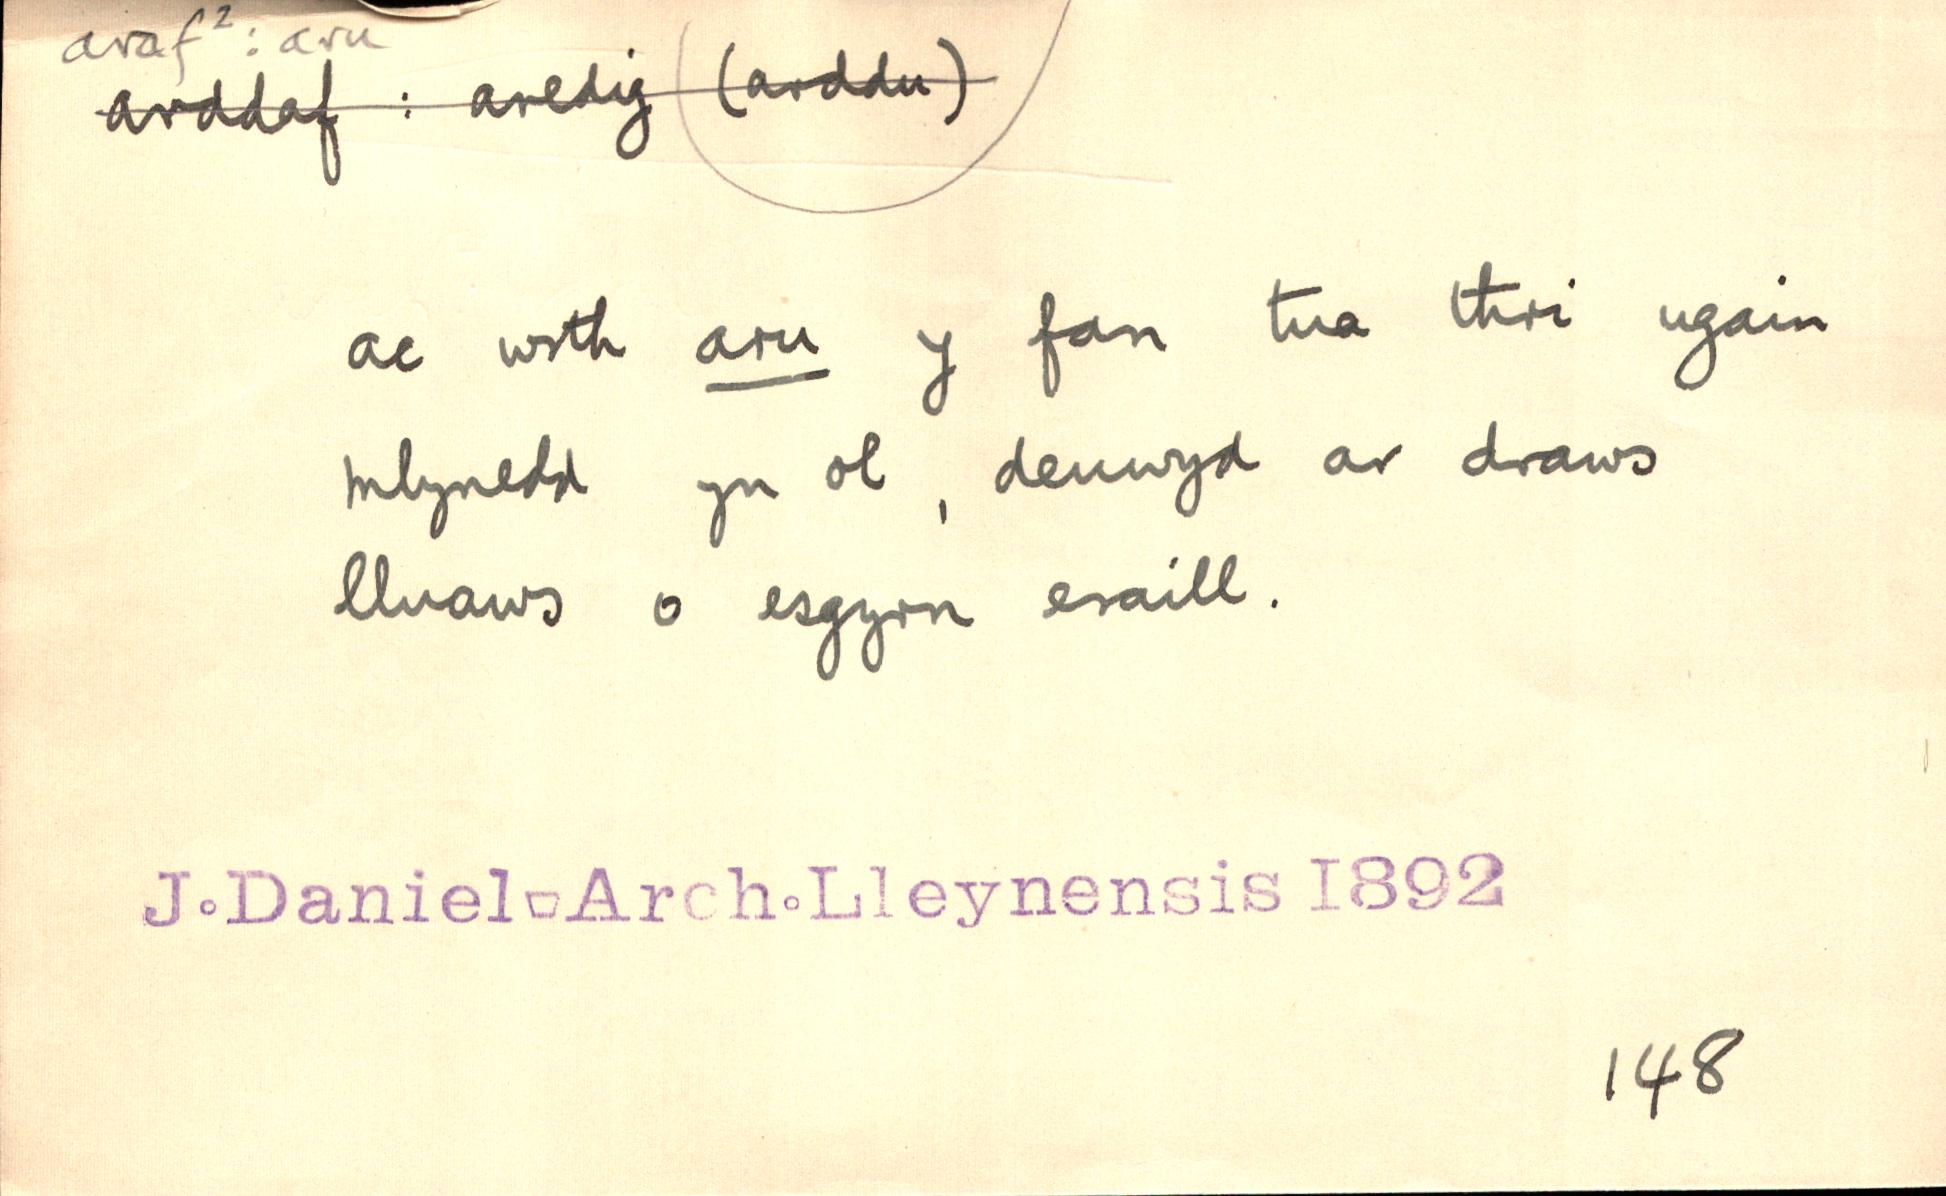 araf²: aru
arddaf : aredig (arddu)
ac wrth aru y fan tua thri ugain
mlynedd yn ol, deuwyd ar draws
lluaws o esgyrn eraill.
J. Daniel-Arch. Lleynensis 1892
148